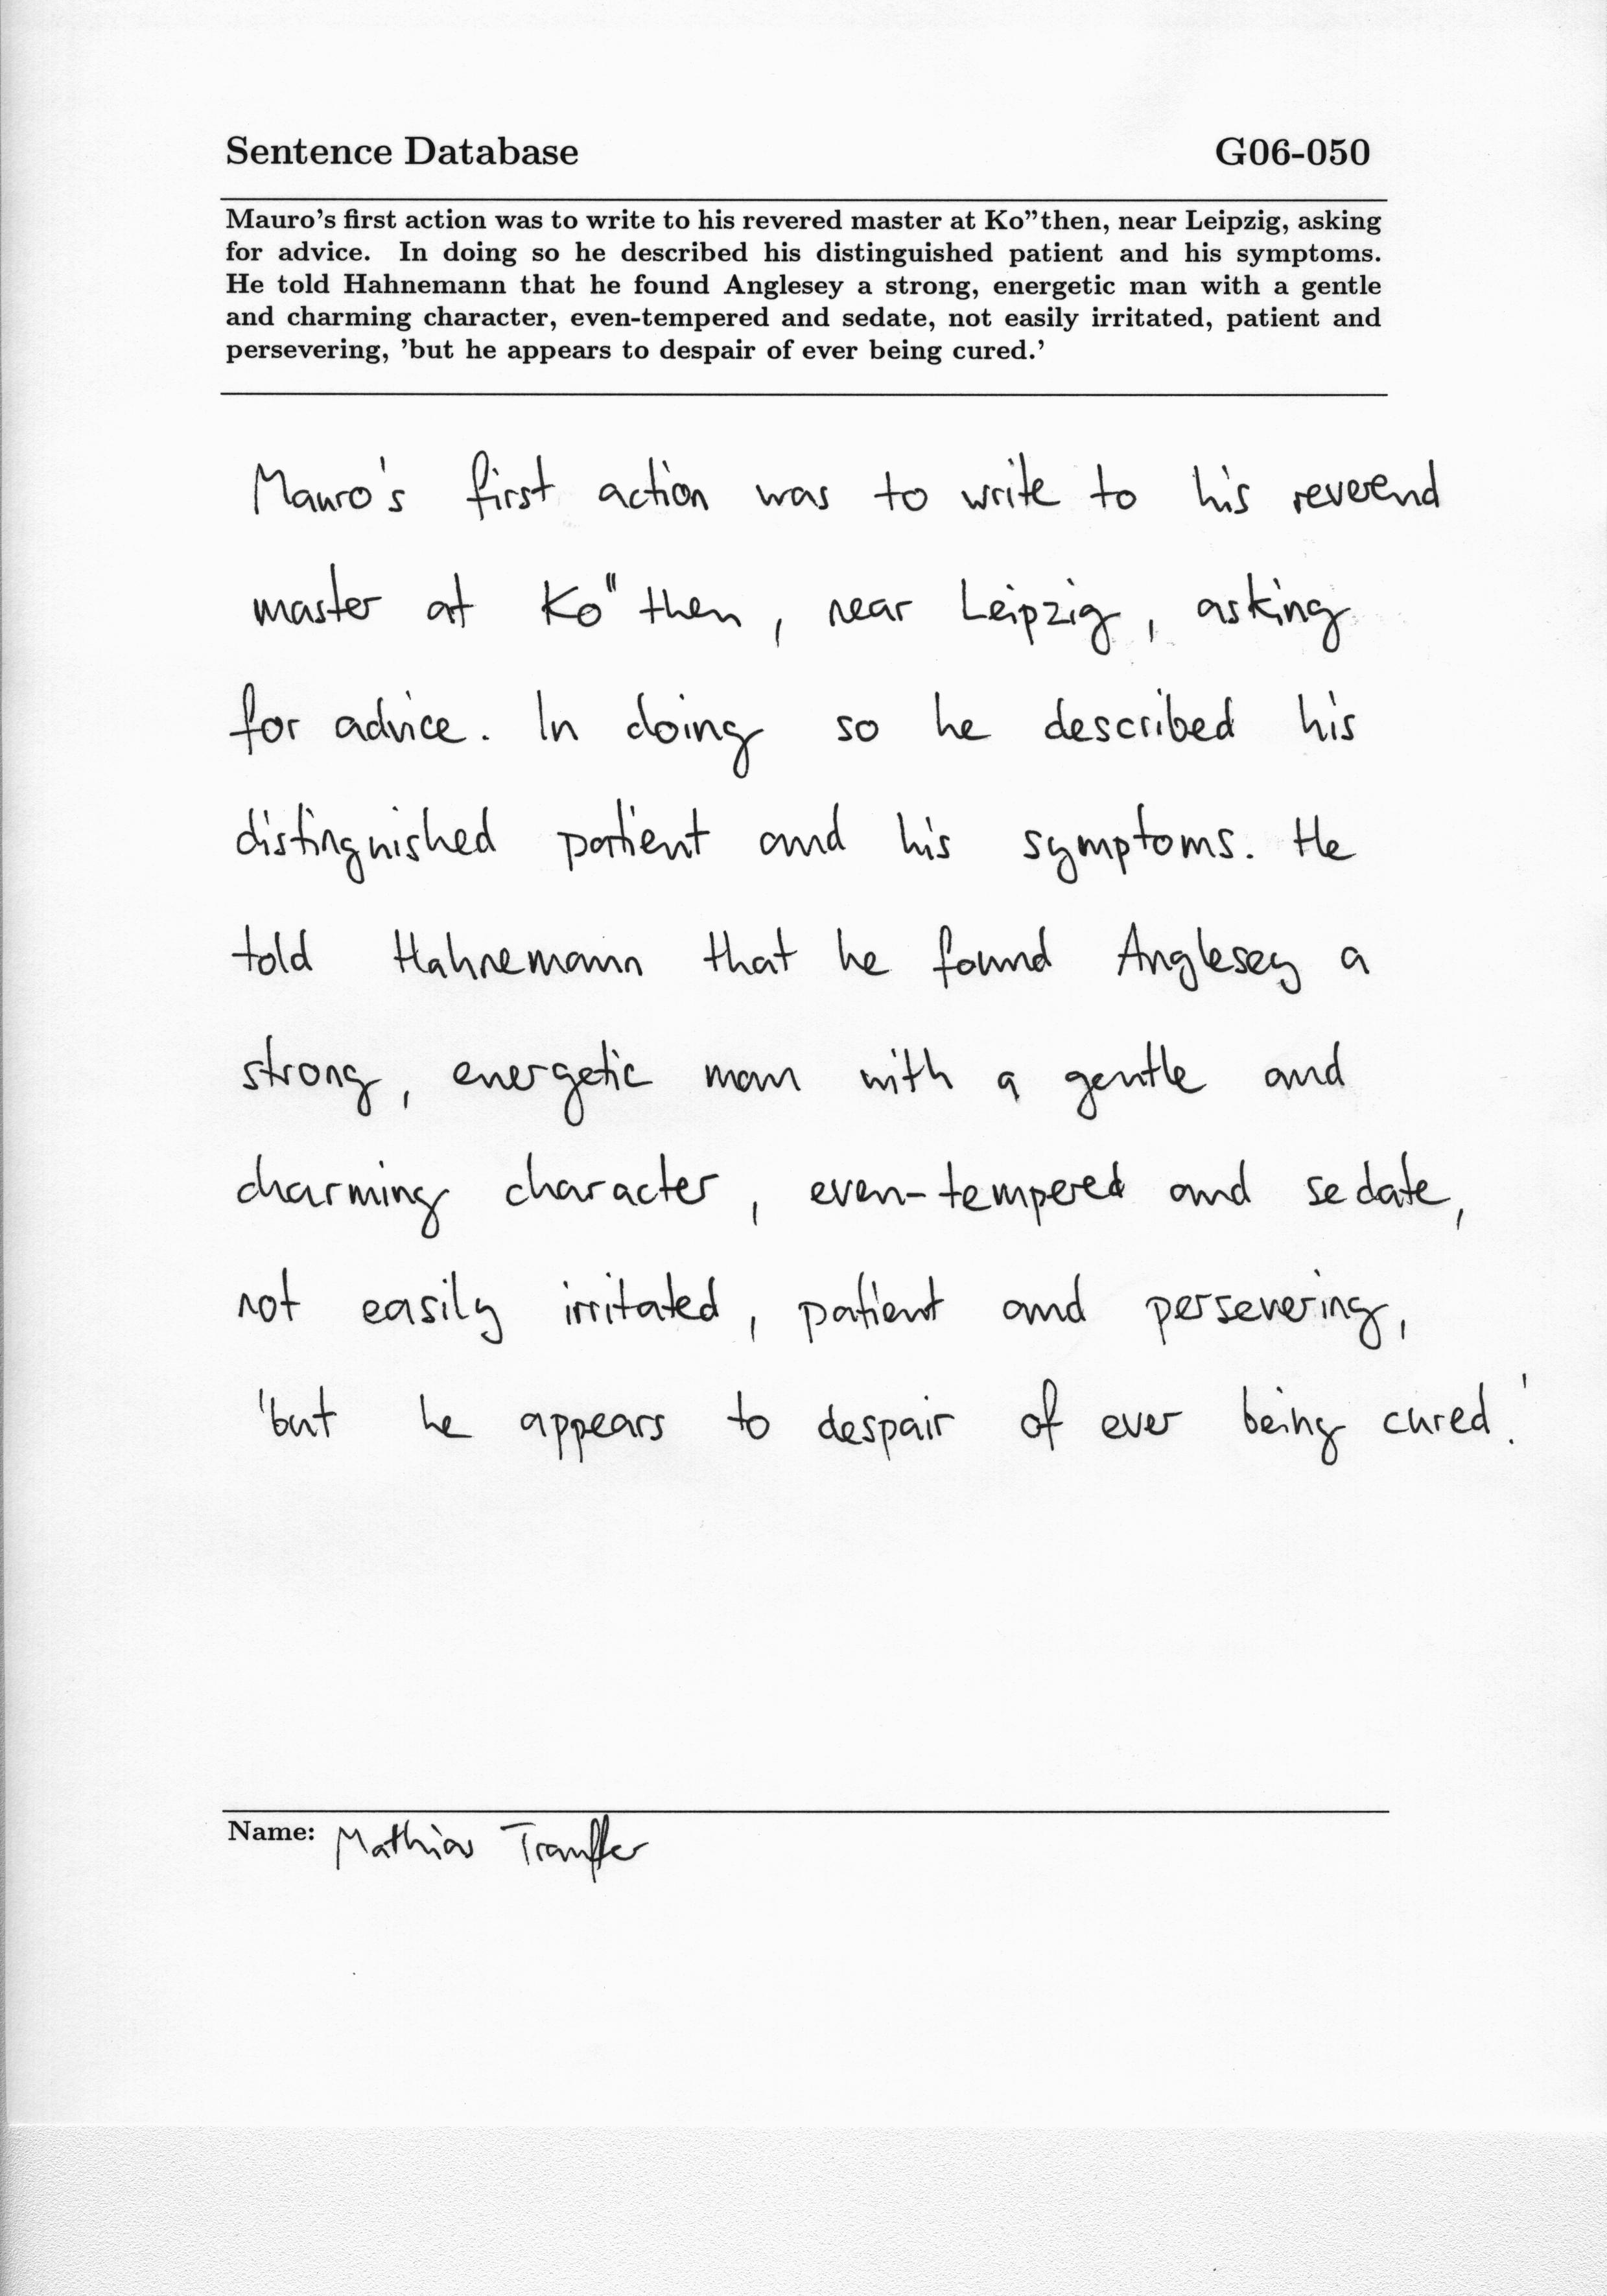 Sentence Database G06-050
Mauro's first action was to write to his revered master at Ko"then, near Leipzig, asking
for advice. In doing so he described his distinguished patient and his symptoms.
He told Hahnemann that he found Anglesey a strong, energetic man with a gentle
and charming character, even-tempered and sedate, not easily irritated, patient and
persevering, 'but he appears to despair of ever being cured.'
Mauro's first action was to write to his reverend
master at Ko"then, near Leipzig, asking
for advice. In doing so he described his
distinguished patient and his symptoms. He
told Hahnemann that he found Anglesey a
strong, energetic man with a gentle and
charming character, even-tempered and sedate,
not easily irritated, patient and persevering,
'but he appears to despair of ever being cured.'
Name: Mathias